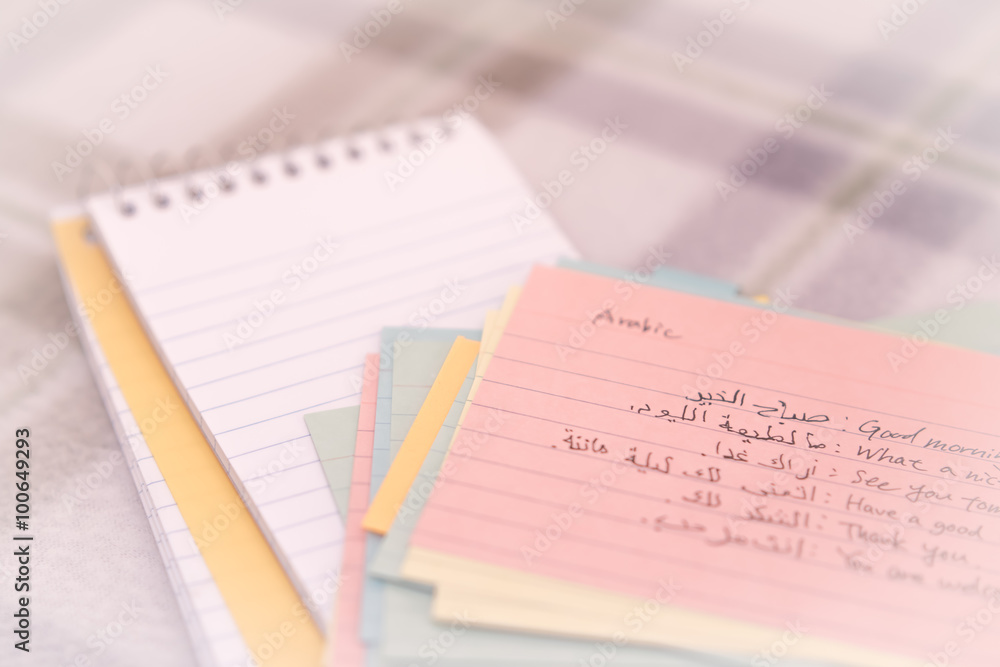 Arabic
صباح الخير : Good mornin
ما لطيفة اليوم. : What a nic
أراك غدا. : See you tom
اتمنى لك ليلة هانئة. : Have a good
الشكر لك. : Thank you.
: You are welc
Adobe Stock | #100649293